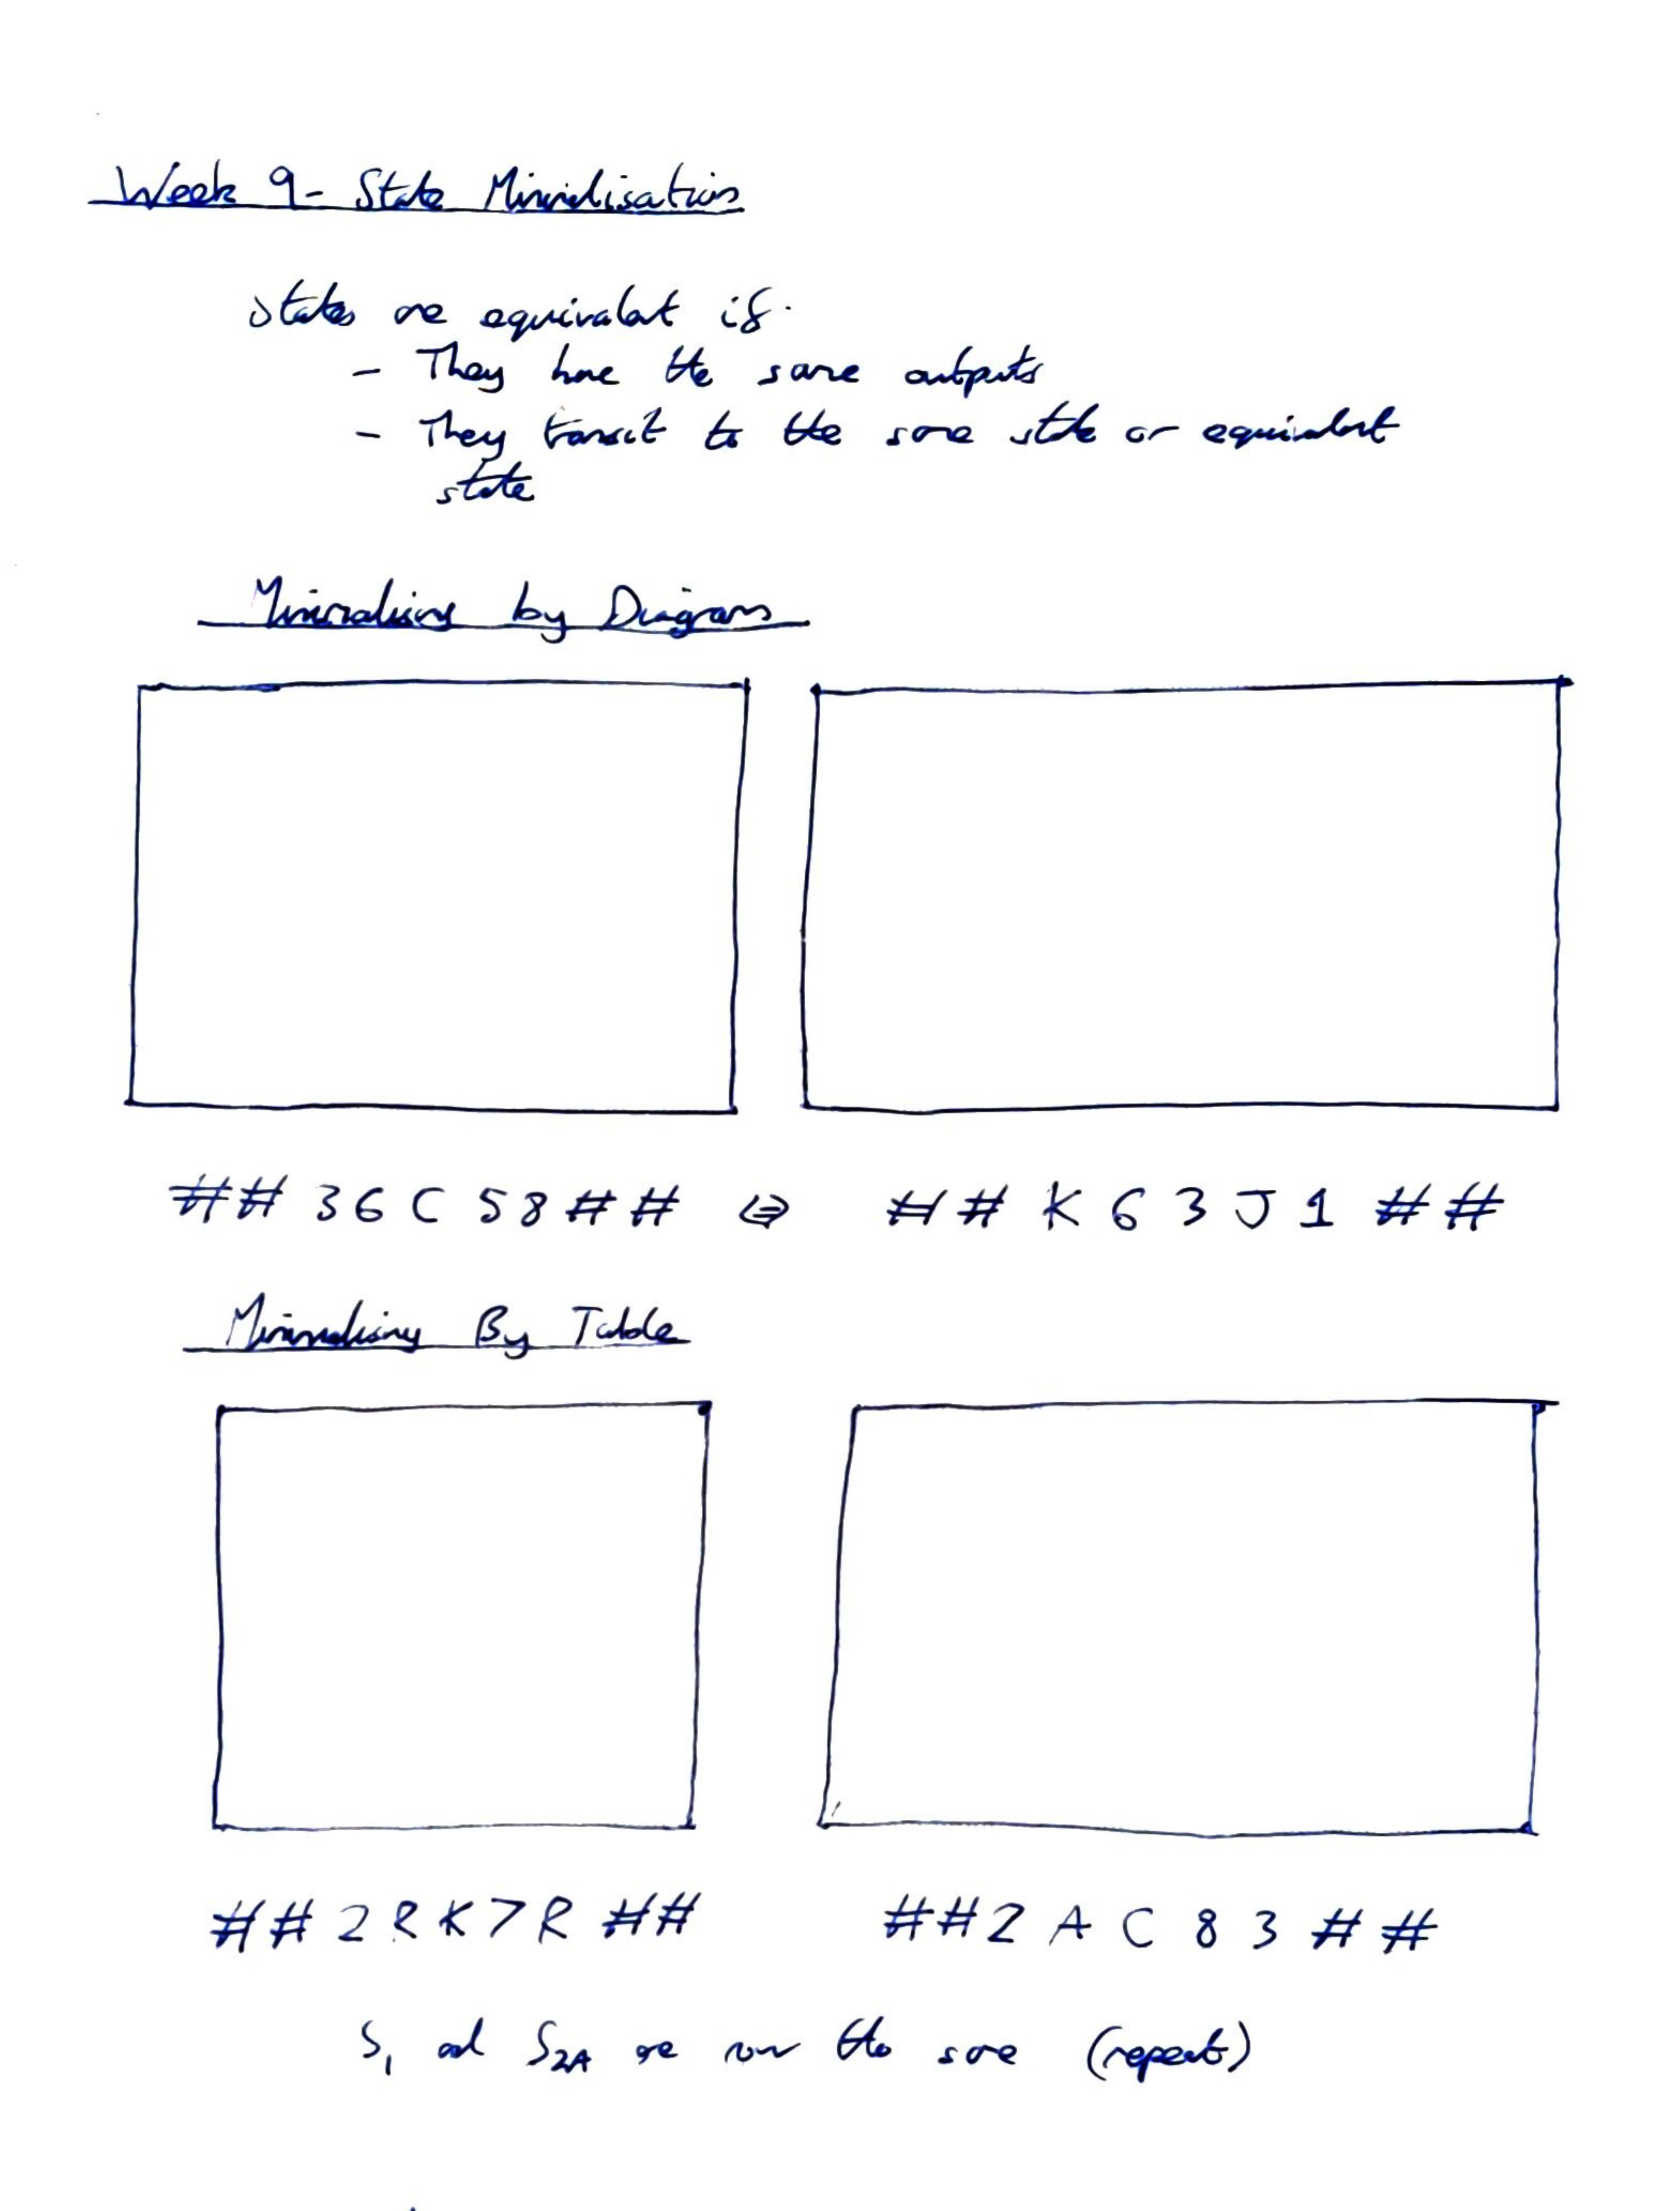 Week 9 - State Minimalisation
States are equivalent if:
- They have the same outputs
- They transit to the same state or equivalent
state
Minimalising by Diagram
## 36C58## ⇔ ## K63J1 ##
Minimalising By Table
## 2RK7R ## ##2AC83 ##
S1 and S2A are now the same (repeat)